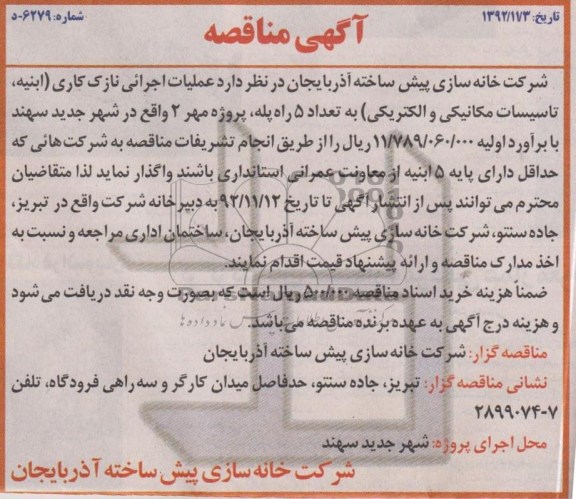 تاریخ: ۱۳۹۲/۱۱/۳
شماره: ۶۲۷۹-د
آگهی مناقصه
شرکت خانه سازی پیش ساخته آذربایجان در نظر دارد عملیات اجرائی نازک کاری (ابنیه،
تاسیسات مکانیکی و الکتریکی) به تعداد ۵ راه پله، پروژه مهر ۲ واقع در شهر جدید سهند
با برآورد اولیه ۱۱/۷۸۹/۰۶۰/۰۰۰ ریال را از طریق انجام تشریفات مناقصه به شرکت هائی که
حداقل دارای پایه ۵ ابنیه از معاونت عمرانی استانداری باشند واگذار نماید لذا متقاضیان
محترم می توانند پس از انتشار آگهی تا تاریخ ۹۲/۱۱/۱۲ به دبیرخانه شرکت واقع در تبریز،
جاده سنتو، شرکت خانه سازی پیش ساخته آذربایجان، ساختمان اداری مراجعه و نسبت به
اخذ مدارک مناقصه و ارائه پیشنهاد قیمت اقدام نمایند.
ضمناً هزینه خرید اسناد مناقصه ۵۰۰/۰۰۰ ریال است که بصورت وجه نقد دریافت می شود
و هزینه درج آگهی به عهده برنده مناقصه می باشد.
مناقصه گزار: شرکت خانه سازی پیش ساخته آذربایجان
نشانی مناقصه گزار: تبریز، جاده سنتو، حدفاصل میدان کارگر و سه راهی فرودگاه، تلفن
۲۸۹۹۰۷۴-۷
محل اجرای پروژه: شهر جدید سهند
شرکت خانه سازی پیش ساخته آذربایجان